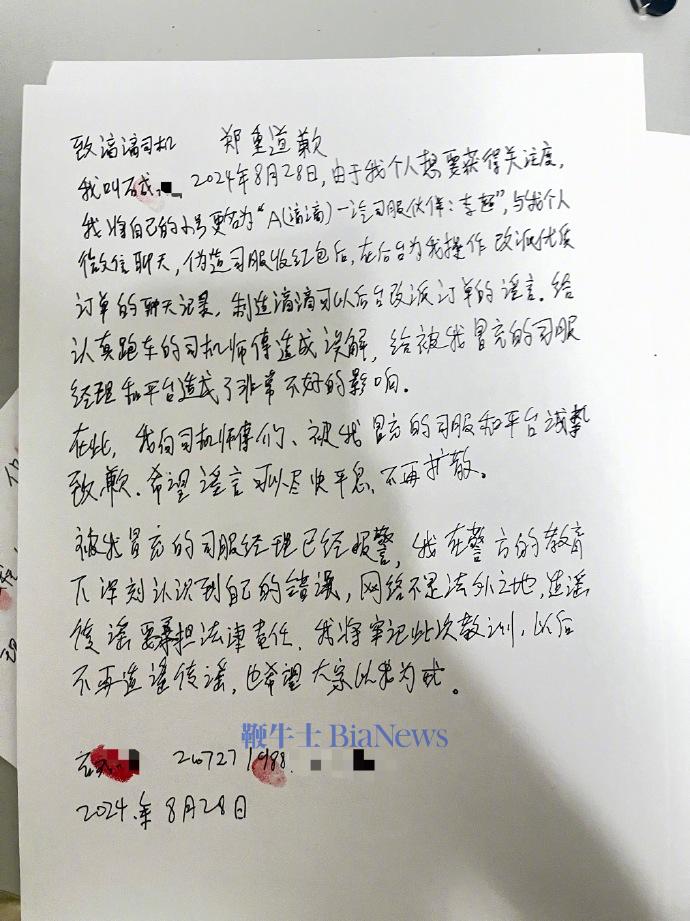 致滴滴司机 郑重道歉
我叫石成 2024年8月28日,由于我个人想要获得关注度,
我将自己的小号更名为“A(滴滴)一汽司服伙伴:李超”,与我个人
微信聊天,伪造司服收红包后,在后台为我操作改派优质
订单的聊天记录,制造滴滴可以后台改派订单的谣言.给
认真跑车的司机师傅造成误解,给被我冒充的司服
经理和平台造成了非常不好的影响.
在此,我向司机师傅们、被我冒充的司服和平台诚挚
致歉.希望谣言可以尽快平息、不再扩散。
被我冒充的司服经理已经报警,我在警方的教育
下深刻认识到自己的错误,网络不是法外之地,造谣
传谣要承担法律责任.我将牢记此次教训,以后
不再造谣传谣,也希望大家以我为戒。
鞭牛士 BiaNews
2024.年8月28日